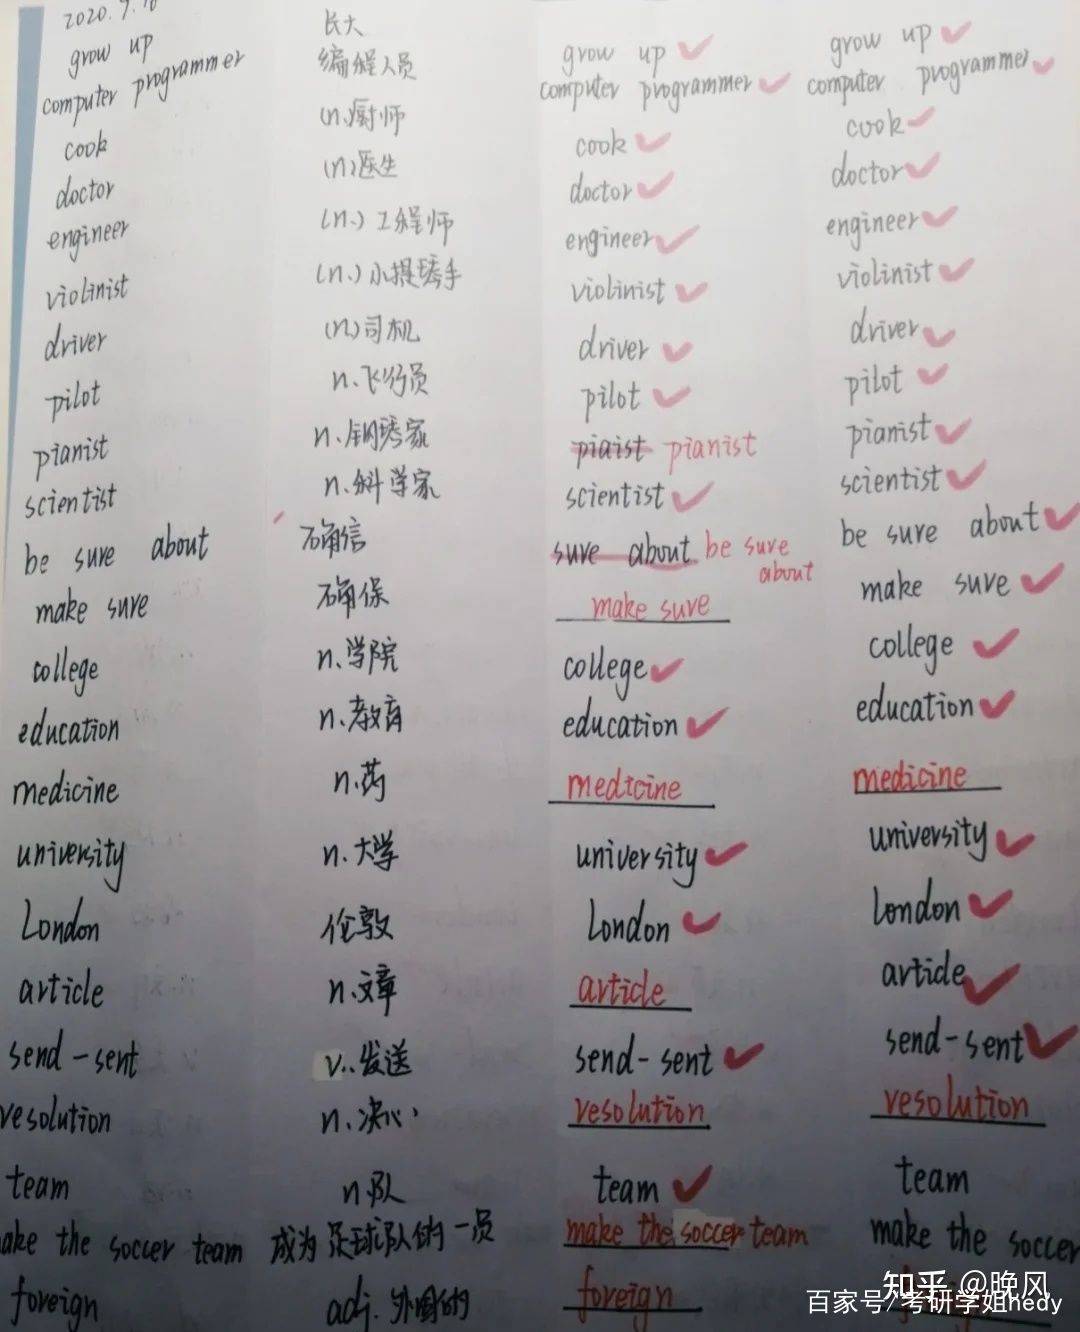 2020.7.10
grow up 长大 grow up grow up
computer programmer 编程人员 computer programmer computer programmer
cook (n.)厨师 cook cook
doctor (n.)医生 doctor doctor
engineer (n.) 工程师 engineer engineer
violinist (n.)小提琴手 violinist violinist
driver (n.)司机 driver driver
pilot n.飞行员 pilot pilot
pianist n.钢琴家 piaist pianist pianist
scientist n.科学家 scientist scientist
be sure about 确信 sure about be sure about be sure about
make sure 确保 make sure make sure
college n.学院 college college
education n.教育 education education
medicine n.药 medicine medicine
university n.大学 university university
London 伦敦 London London
article n.文章 article article
send-sent v..发送 send-sent send-sent
resolution n.决心 resolution resolution
team n.队 team team
ake the soccer team 成为足球队的一员 make the soccer team make the soccer
foreign adj.外国的 foreign
知乎 @晚风
百家号/考研学姐hedy